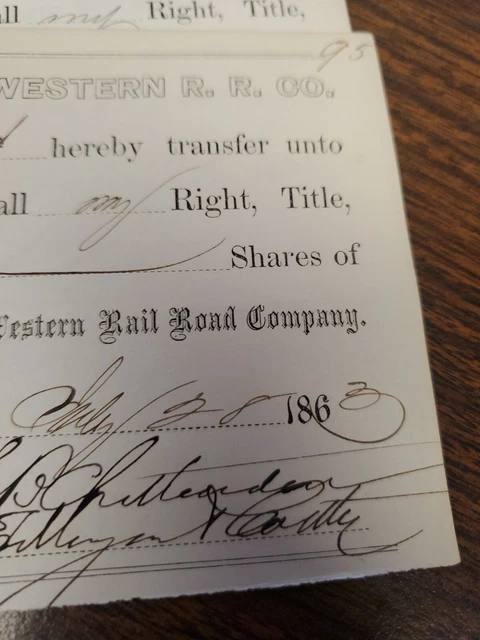 all my Right, Title,
95
WESTERN R. R. CO.
hereby transfer unto
all my Right, Title,
Shares of
Western Rail Road Company.
July 28 1863
R Chittenden